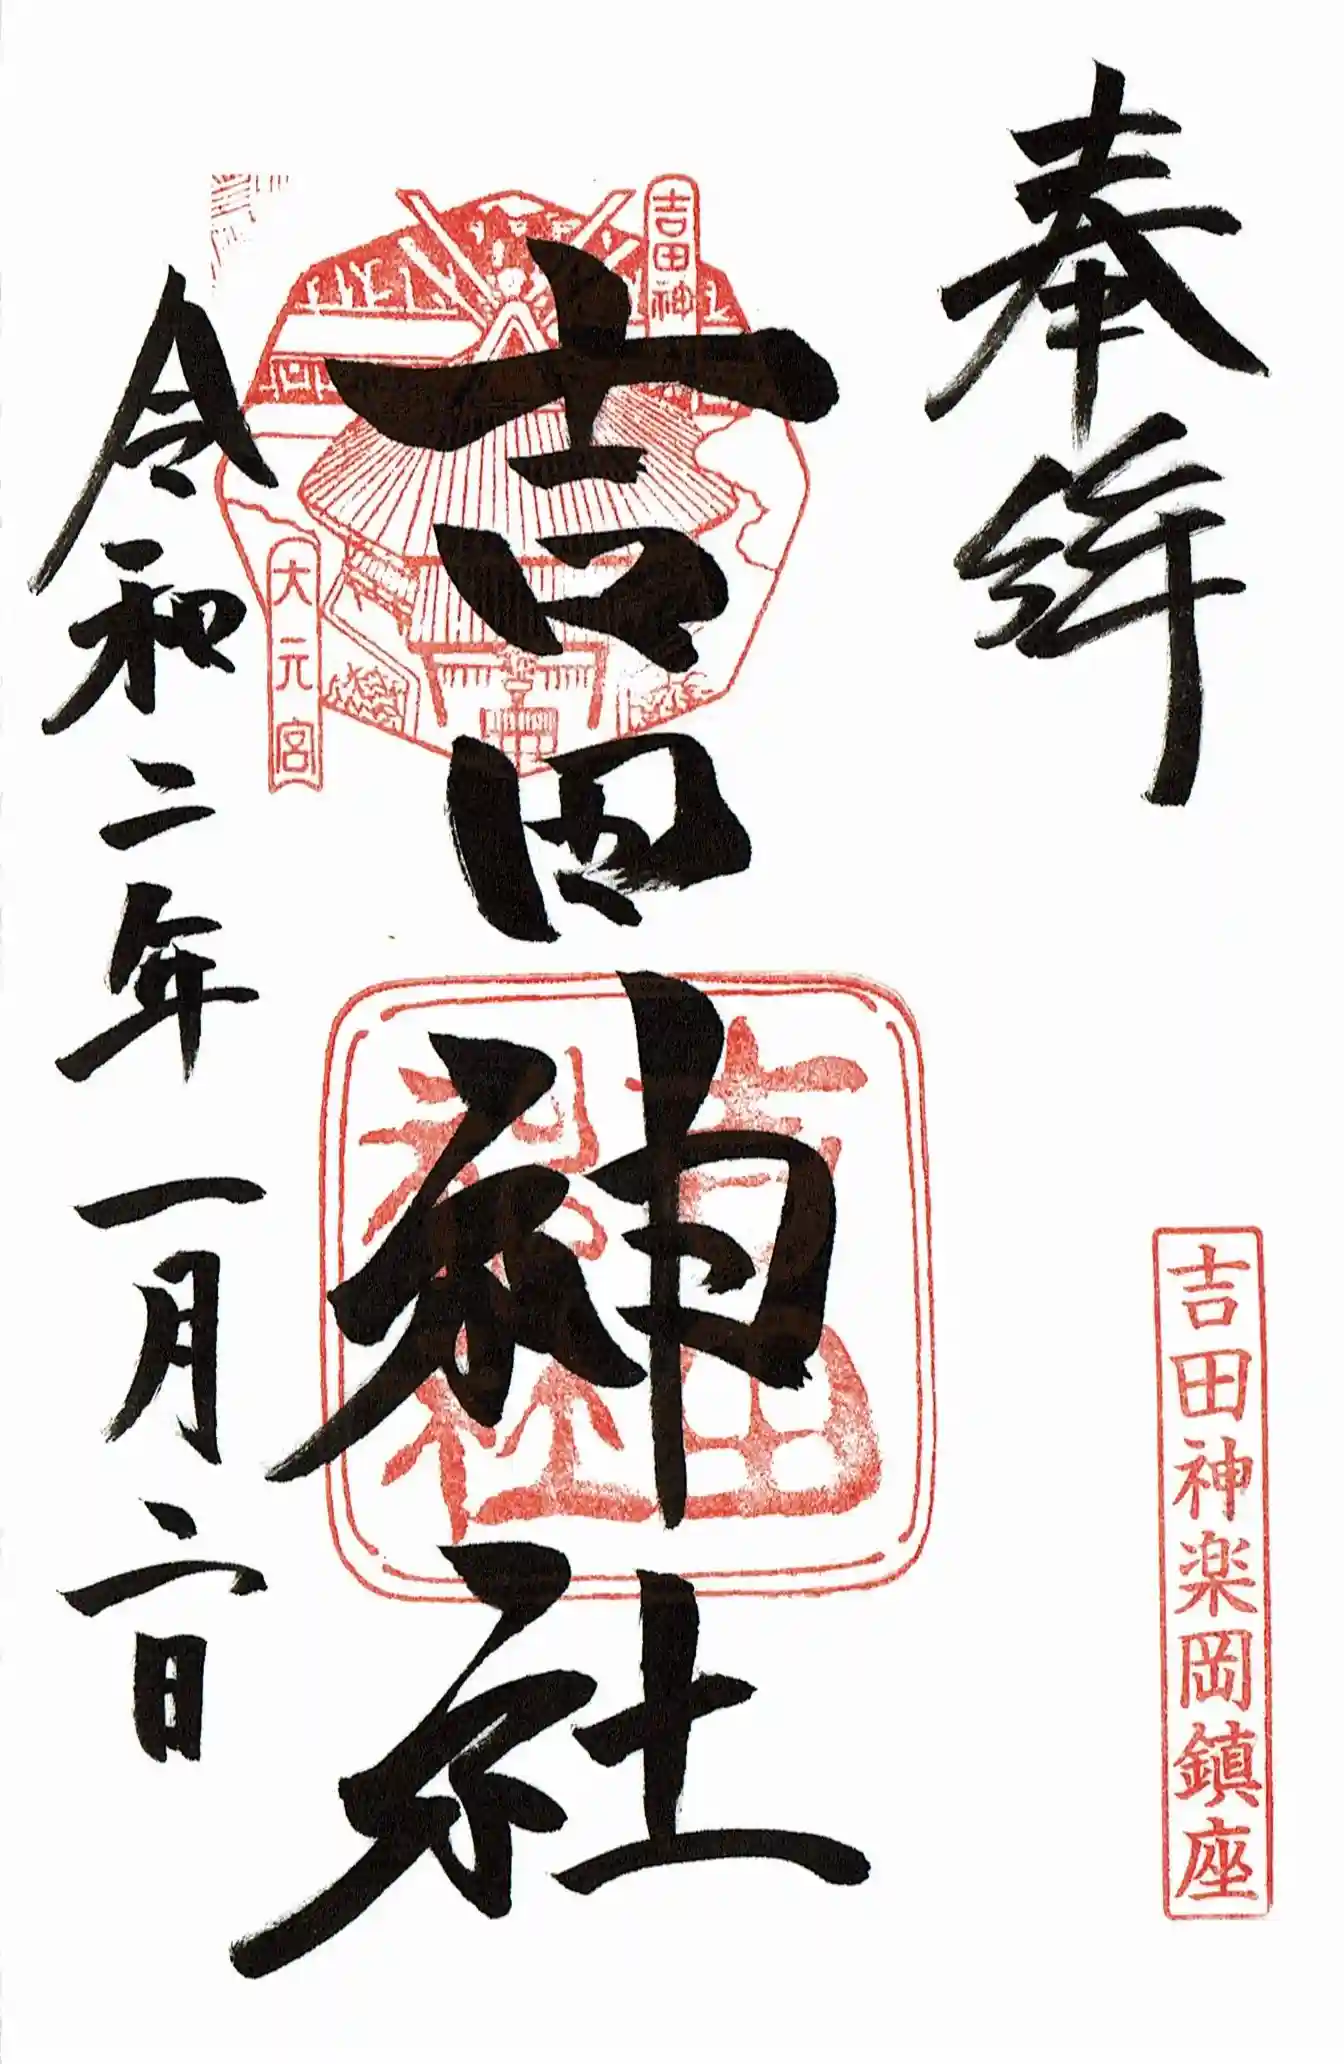 奉拜
吉田神楽岡鎮座
吉田神
吉田神社
大元宮
令和二年一月二日